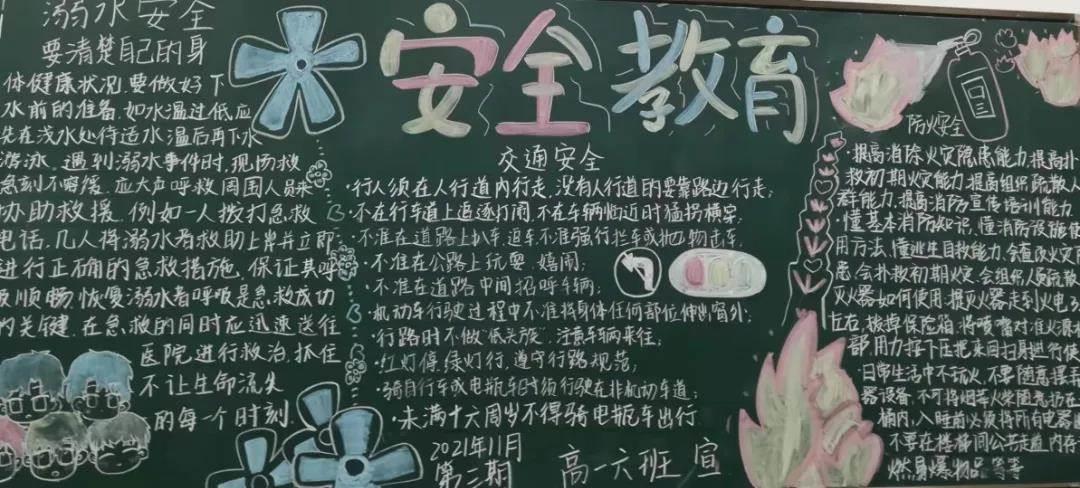 溺水安全
要清楚自己的身
体健康状况,要做好下
水前的准备,如水温过低应
先在浅水处待适水温后再下水
游泳,遇到溺水事件时,现场救
急刻不容缓,应大声呼救周围人员来
协助救援,例如一人拨打急救
电话,几人将溺水者救助上岸并立即
进行正确的急救措施,保证其呼
吸顺畅,恢复溺水者呼吸是急救成功
的关键,在急救的同时应迅速送往
医院进行救治,抓住
不让生命流失
的每一个时刻
安全教育
交通安全
·行人须在人行道内行走,没有人行道的要靠路边行走;
·不在行车道上追逐打闹,不在车辆临近时猛拐横穿;
·不准在道路上扒车,追车,不准强行拦车或抛物击车
·不准在公路上玩耍、嬉闹;
·不准在道路中间招呼车辆;
·机动车行驶过程中不准将身体任何部位伸出窗外;
行路时不做“低头族”,注意车辆来往;
·红灯停,绿灯行,遵守行路规范;
·骑自行车或电瓶车时须行驶在非机动车道;
·未满十六周岁不得骑电瓶车出行
2021年11月
第三期
高一六班 宣
防火安全
·提高消除火灾隐患能力,提高扑
救初期火灾能力,提高组织疏散人
群能力,提高消防宣传培训能力
懂基本消防知识,懂消防设施使
用方法,懂逃生自救能力,会查改火灾
患,会扑救初期火灾,会组织人员疏散
灭火器如何使用:提灭火器走到火电
左右,拔掉保险箱,将喷嘴对准火源根
部,用力按下压把来回扫身进行使
·日常生活中不玩火,不要随意摆弄
器设备,不可将烟蒂火学随意扔在
桶内,入睡前必须将所有电器
不要在楼梯间公共走道内存
燃易爆物品等等